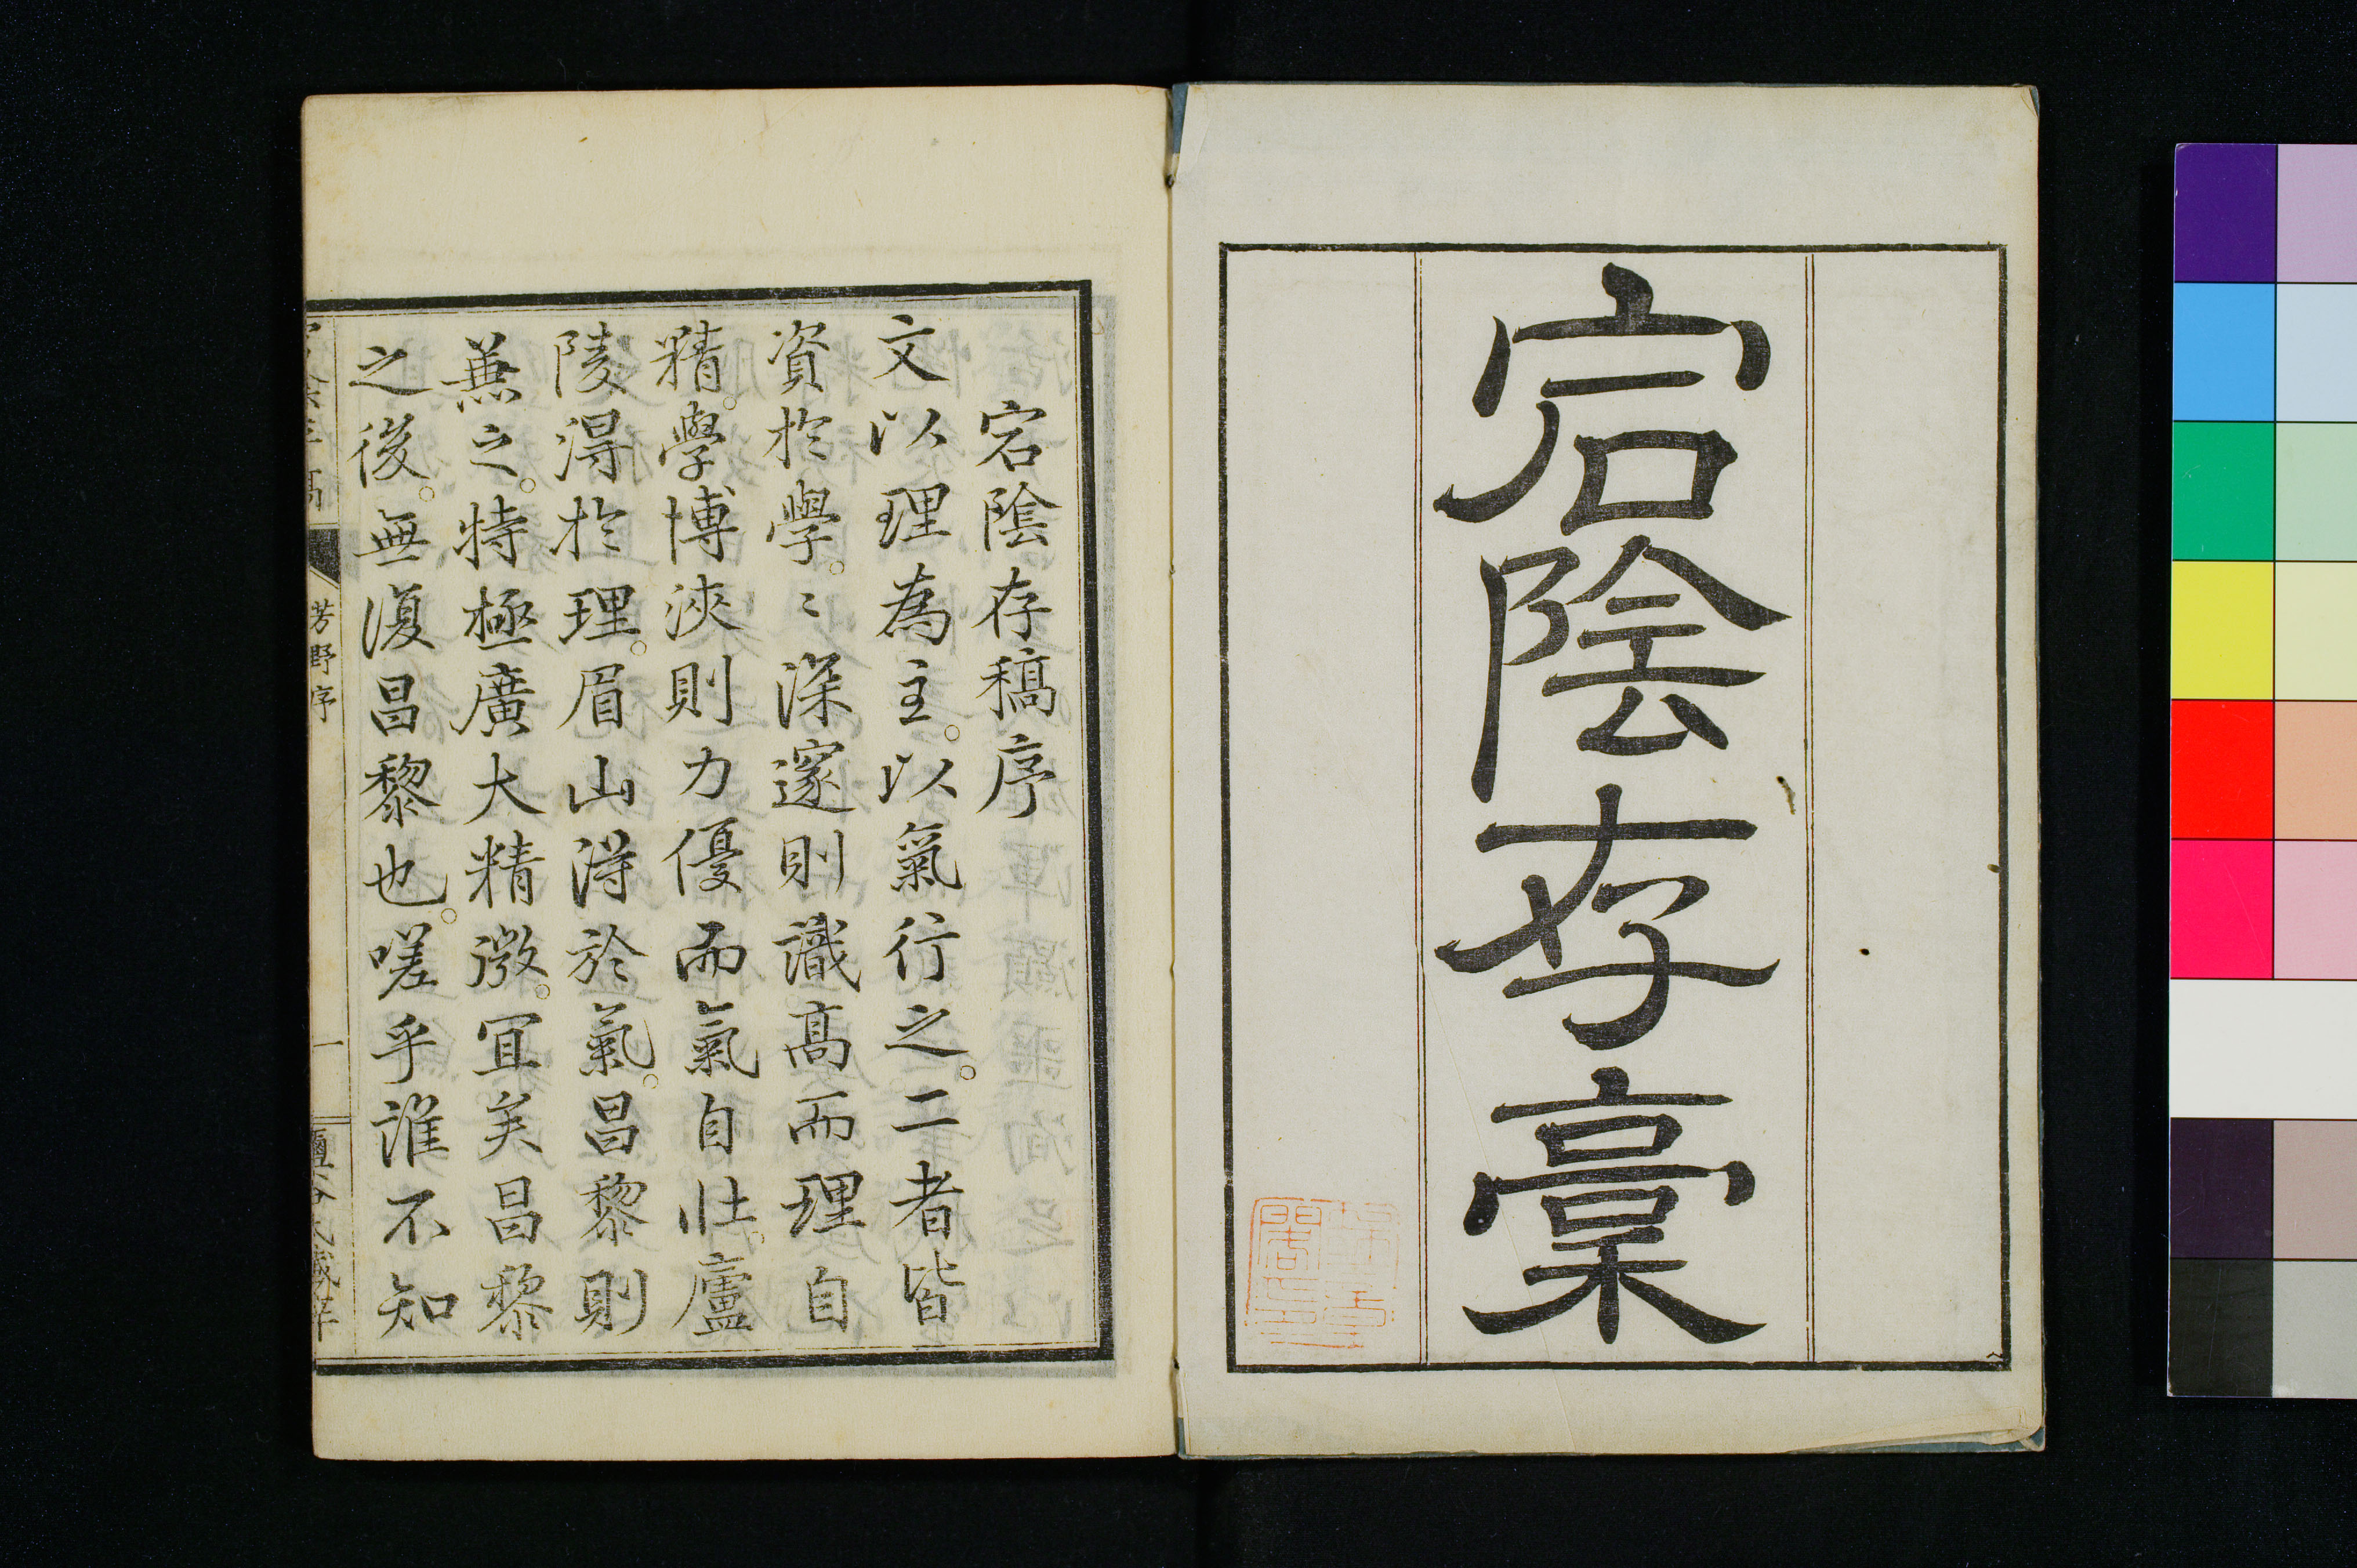 宕陰存稾
宕陰存稿序
文以理為主。以氣行之。二者皆
資於學。〻深邃則識高而理自
精。學博浹則力優而氣自壯。廬
陵得於理。眉山得於氣。昌黎則
兼之。特極廣大精微。宜矣昌黎
之後。無復昌黎也。嗟乎誰不知
芳野序
一